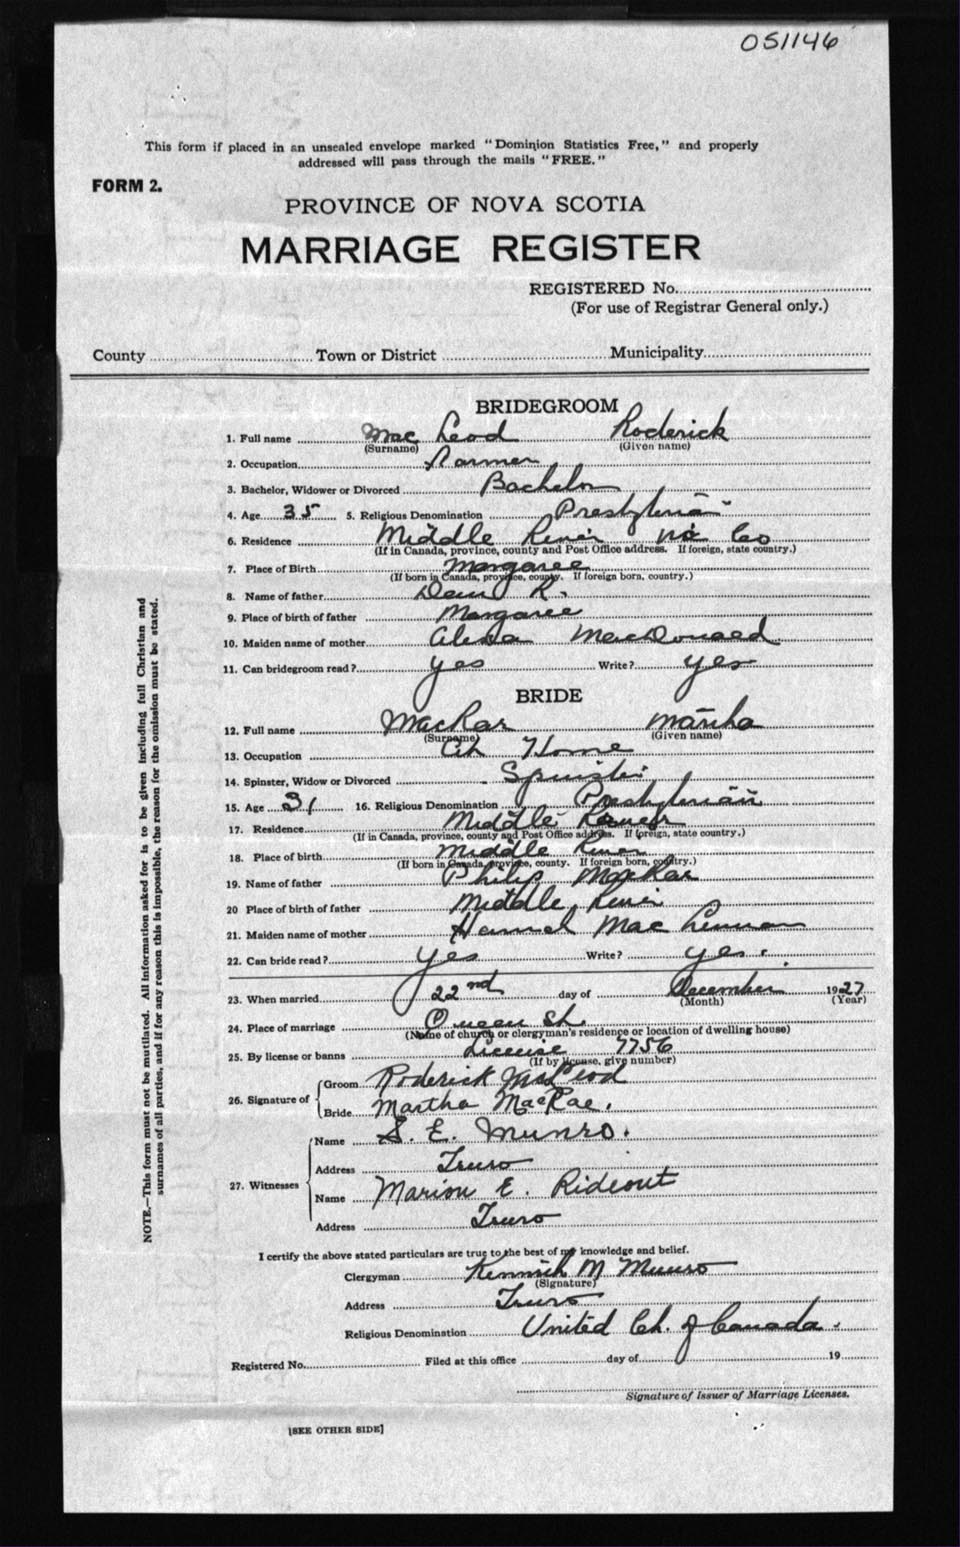 051146
This form if placed in an unsealed envelope marked "Dominion Statistics Free," and properly
addressed will pass through the mails "FREE."
FORM 2.
PROVINCE OF NOVA SCOTIA
MARRIAGE REGISTER
REGISTERED No.
(For use of Registrar General only.)
County Town or District Municipality
NOTE.—This form must not be mutilated. All information asked for is to be given including full Christian and
surnames of all parties, and if for any reason this is impossible, the reason for the omission must be stated.
BRIDEGROOM
1. Full name Mac Leod Roderick
(Surname) (Given name)
2. Occupation Farmer
3. Bachelor, Widower or Divorced Bachelor
4. Age 35 5. Religious Denomination Presbyterian
6. Residence Middle River Vic Co
(If in Canada, province, county and Post Office address. If foreign, state country.)
7. Place of Birth Margaree
(If born in Canada, province, county. If foreign born, country.)
8. Name of father R.
9. Place of birth of father Margaree
10. Maiden name of mother MacDonald
11. Can bridegroom read? yes Write? yes
BRIDE
12. Full name MacRae Martha
(Surname) (Given name)
13. Occupation At Home
14. Spinster, Widow or Divorced Spinster
15. Age 31 16. Religious Denomination Presbyterian
17. Residence Middle River
(If in Canada, province, county and Post Office address. If foreign, state country.)
18. Place of birth Middle River
(If born in Canada, province, county. If foreign born, country.)
19. Name of father Philip MacRae
20 Place of birth of father Middle River
21. Maiden name of mother Mac Lennan
22. Can bride read? yes Write? yes.
23. When married 22nd day of December 1927
(Month) (Year)
24. Place of marriage Queen St.
(Name of church or clergyman's residence or location of dwelling house)
25. By license or banns License 7756
(If by license, give number)
26. Signature of Groom Roderick McLeod
Bride Martha MacRae.
27. Witnesses Name S. E. Munro.
Address Truro
Name Marion E. Rideout
Address Truro
I certify the above stated particulars are true to the best of my knowledge and belief.
Clergyman Kenneth M Munro
(Signature)
Address Truro
Religious Denomination United Ch. of Canada.
Registered No. Filed at this office day of 19
Signature of Issuer of Marriage Licenses.
[SEE OTHER SIDE]